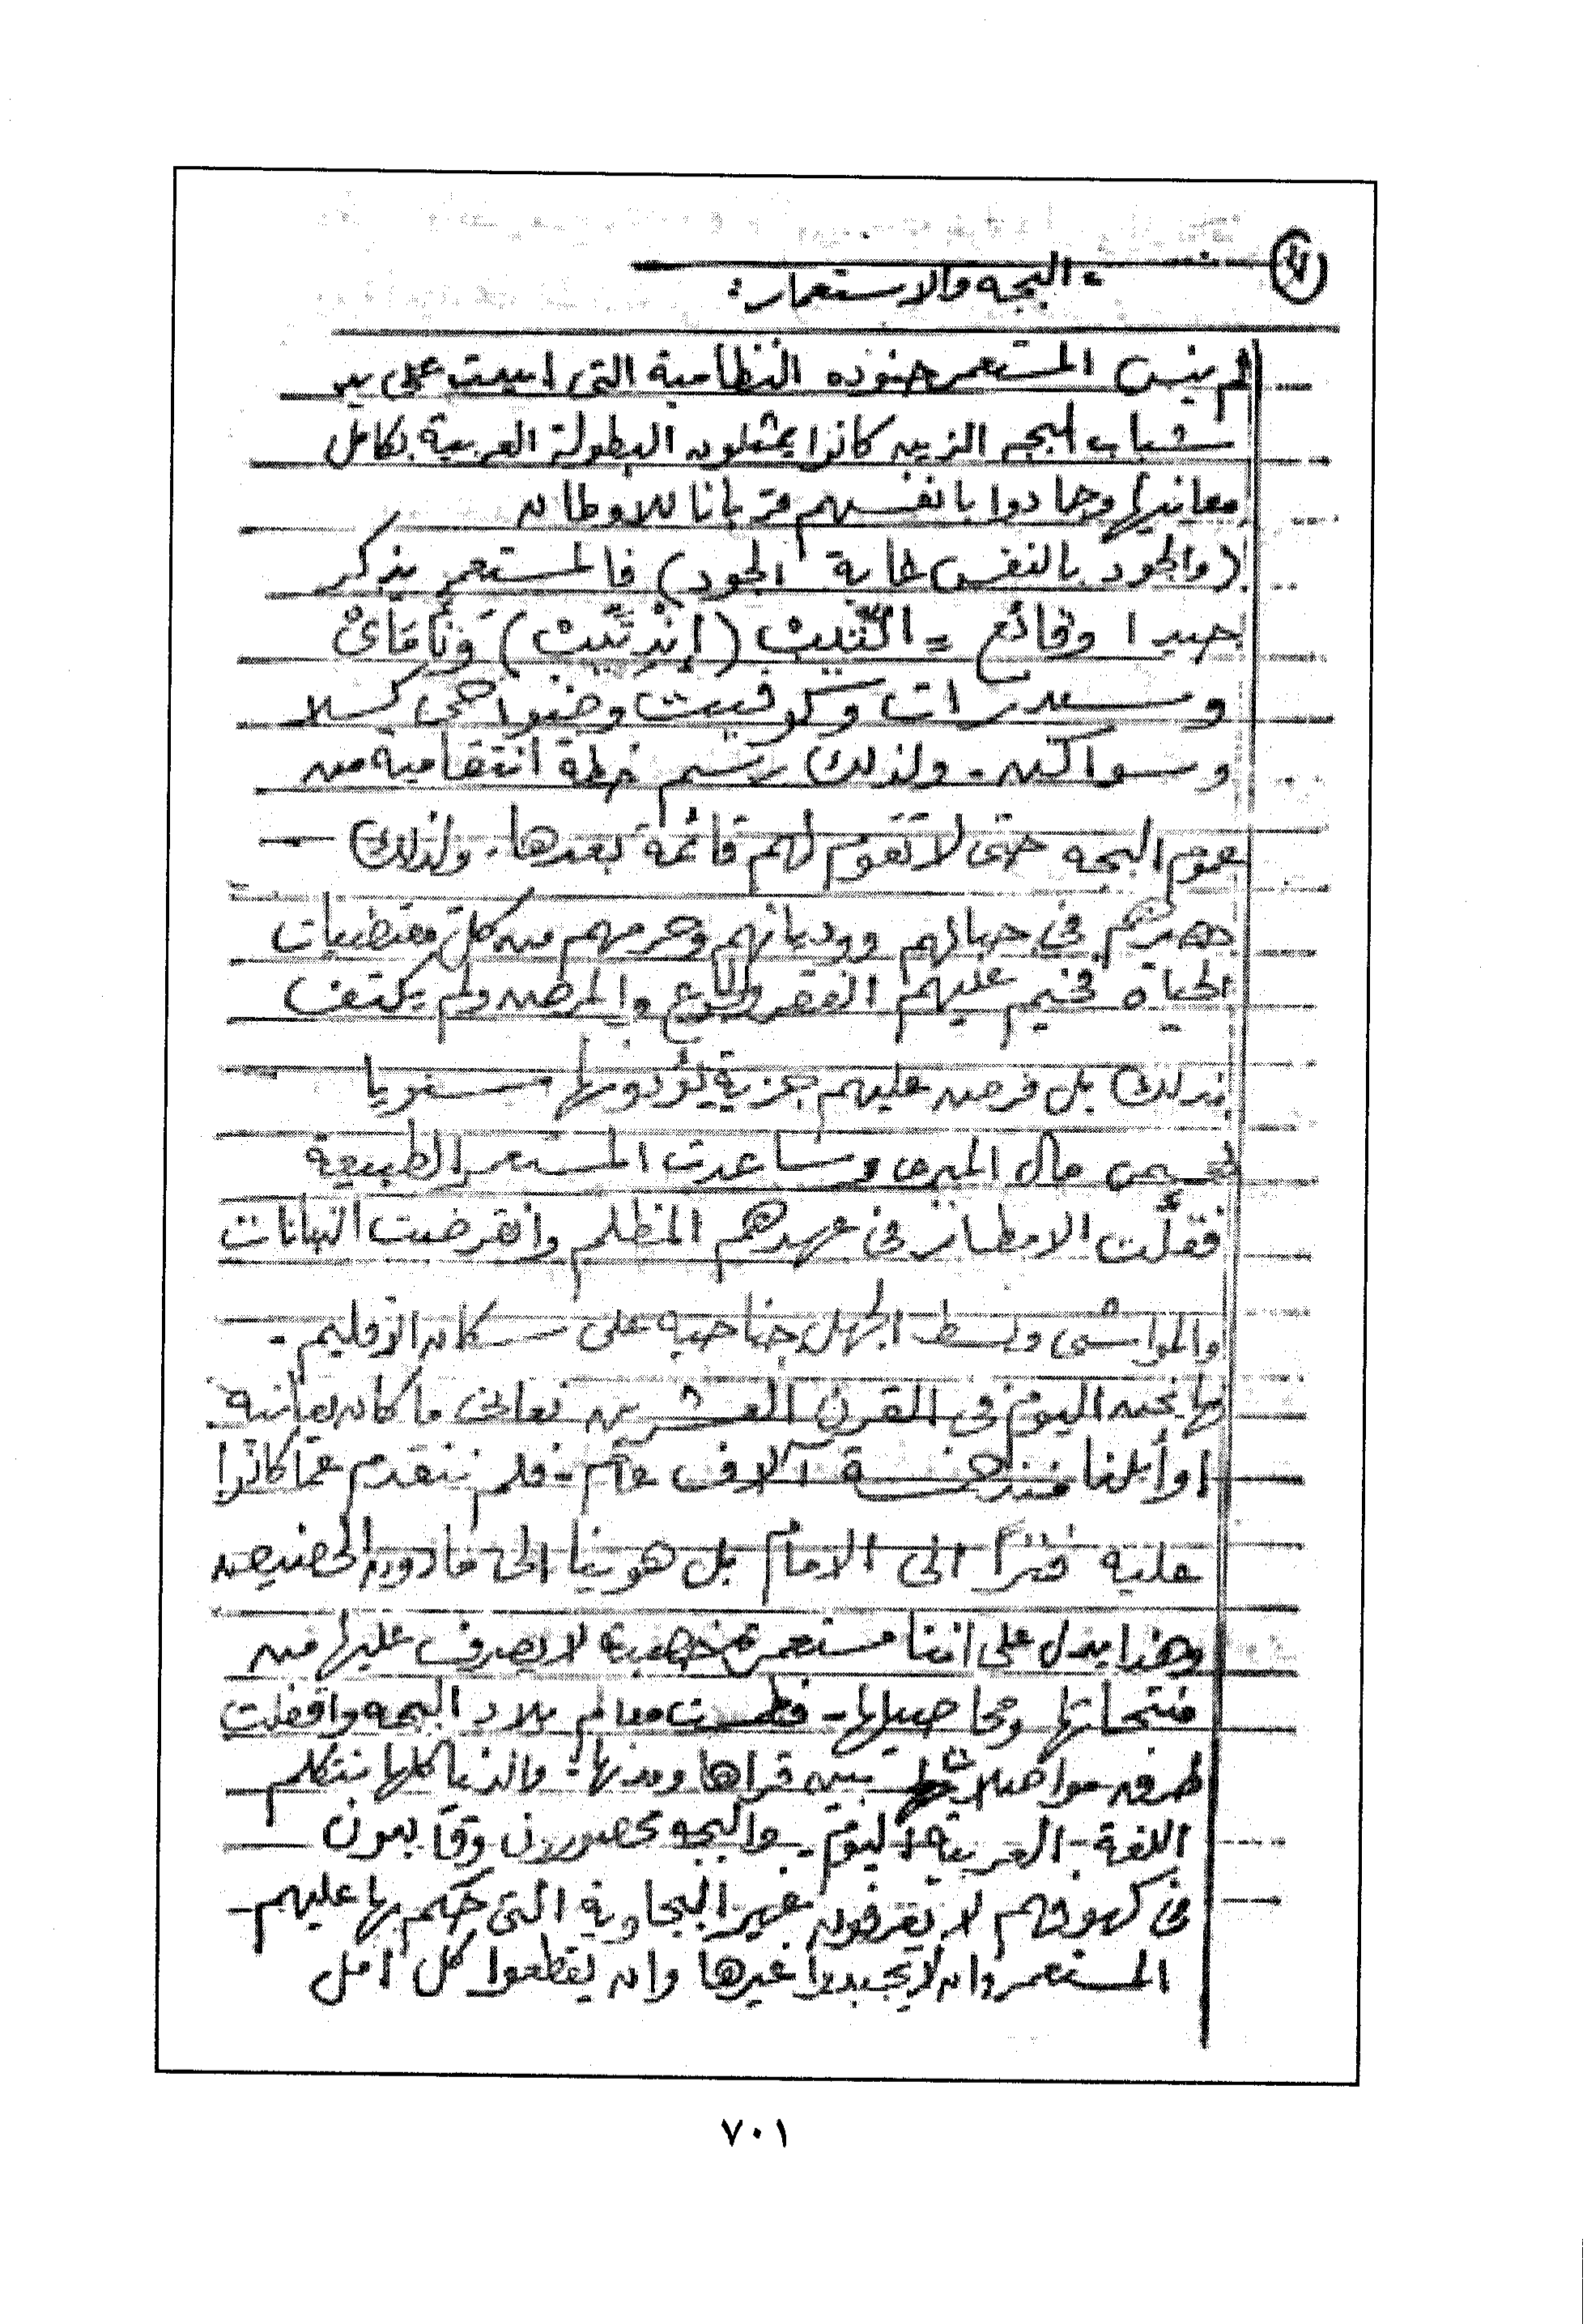 = البجه والاستعمار :
لم ينس المستعمر جنوده النظامية التى ابيدت على يد
شباب البجه الذين كانوا يمثلون البطولة العربية بكامل
معانيها وجادوا بانفسهم قربانا للاوطان
(والجود بالنفس غاية الجود) فالمستعمر يذكر
جيدا وقائع = التّيب (إنْدتّيب)
وسدرات وكوفيت وضواحى كسلا
وسواكن - ولذلك رسم خطة انتقامية من
عموم البجه حتى لا تقوم لهم قائمة بعدها. ولذلك
حصرهم فى جبالهم ووديانهم وحرمهم من كل مقتضيات
الحياة فخيم عليهم الفقر والجوع والمرض ولم يكتف
بذلك بل فرض عليهم جزية يؤدونها سنويا
تسمى مال الميرى وساعدت المستعمر الطبيعة
فقلّت الامطار فى عهدهم المظلم وانقرضت النباتات
والمواشى وبسط الجهل جناحيه على سكان الاقليم -
فها نحن اليوم فى القرن العشرين نعانى ما كان يعانيه
اوائلنا منذ خمسة آلاف عام - فلم نتقدم عما كانوا
عليه فترًا الى الامام بل هوينا الى مادون الحضيض
وهذا يدل على اننا مستعمرة خصبة لا يصرف عليها من
منتجاتها ومحاصيلها - فطمست معالم بلاد البجه واقفلت
طرق مواصلات بين قراها ومدنها : والدنيا كلها تتكلم
اللغة - العربية اليوم - والبجه محصورون وقابعون
فى كهوفهم لا يعرفون غير البجاوية التى حكم بها عليهم -
المستعمر وان لا يجيدوا غيرها وان يقطعوا كل امل
٧٠١